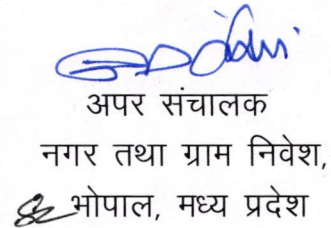 अपर संचालक
नगर तथा ग्राम निवेश,
भोपाल, मध्य प्रदेश